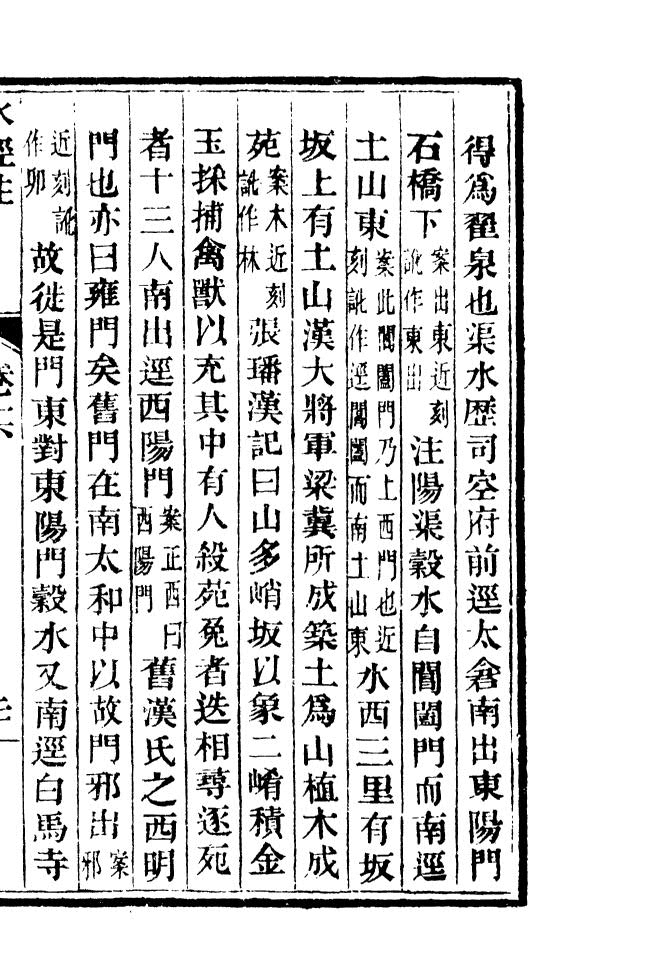 得爲翟泉也渠水歷司空府前逕太倉南出東陽門
石橋下案出東近刻訛作東出注陽渠穀水自閶闔門而南逕
土山東案此閶闔門乃上西門也近刻訛作逕閶闔而南土山東水西三里有坂
坂上有土山漢大將軍梁冀所成築土爲山植木成
苑案木近刻訛作林張璠漢記曰山多峭坂以象二崤積金
玉採捕禽獸以充其中有人殺苑兔者迭相尋逐死
者十三人南出逕西陽門案正西曰西陽門舊漢氏之西明
門也亦曰雍門矣舊門在南太和中以故門邪出案邪
近刻訛作卯故徙是門東對東陽門穀水又南逕白馬寺
水經注 卷十六